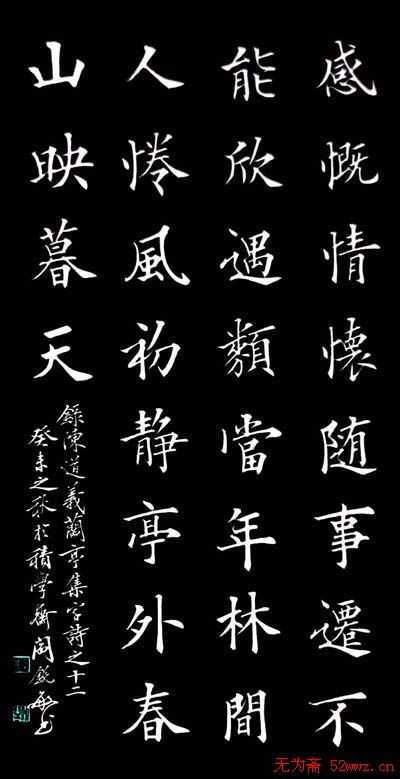 感慨情懷随事遷不
能欣遇類當年林間
人惓風初静亭外春
山映暮天
錄陳道義蘭亭集字詩之十二
癸未之秋於積學齋
无为斋 52wwz.cn